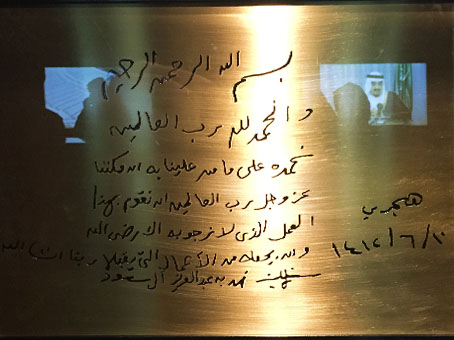 بسم الله الرحمن الرحيم
والحمد لله رب العالمين
نحمده على ما من علينا به ان مكننا
عز وجل رب العالمين ان نقوم بهذا
العمل الذي لا نرجو به الا رضى الله
وان يجعله من الأعمال التي يقبلها ربنا ان شاء الله
فهد بن عبدالعزيز آل سعود
هجري
١٤١٢/٦/١٠